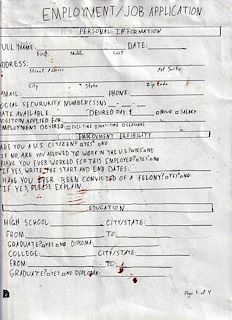 EMPLOYMENT/JOB APPLICATION
PERSONAL INFORMATION
ULL NAME: DATE:
First Middle Last
ADDRESS:
Street Address Apt/Suite
City State Zip Code
MAIL: PHONE
OCIAL SECURUKITY NUMBER (SSN)
ATE AVAILABLE DESIRED PAY: $ HOUR SALARY
POSITION APPLIED FOR:
EMPLOYMENT DESIRED FULL-TIME PART-TIME SEASONAL
EMPLOYMENT ELIGIBILITY
ARE YOU A U.S CITIZEN? YES NO
IF NO, ARE YOU ALLOWED TO WORK IN THE U.S? YES NO
HAVE YOU EVER WORKED FOR THIS EMPLOYER? YES NO
IF YES, WRITE THE START AND END DATES:
HAVE YOU EVER BEEN CONVICTED OF A FELONY? YES NO
IF YES, PLEASE EXPLAIN
EDUCATION
HIGH SCHOOL: CITY/STATE:
FROM: TO:
GRADUATE? YES NO DIPLOMA:
COLLEGE: CITY/STATE:
FROM: TO:
GRADUATE? YES NO DIPLOMA:
Page 1 of 4